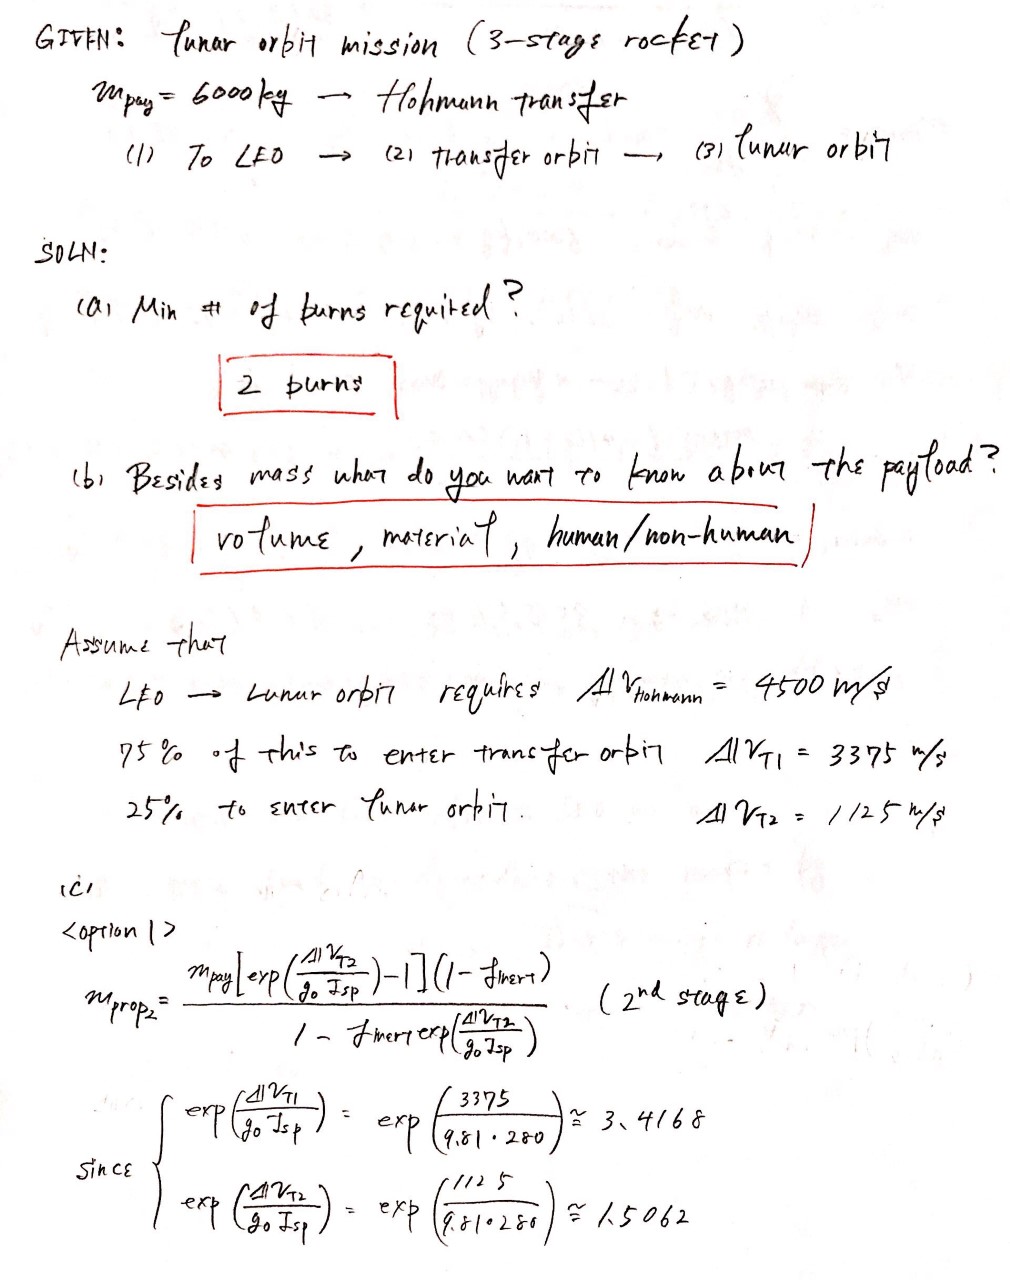 GIVEN: lunar orbit mission (3-stage rocket)
m_pay = 6000 kg → Hohmann transfer
(1) To LEO → (2) transfer orbit → (3) lunar orbit
SOLN:
(a) Min # of burns required?
2 burns
(b) Besides mass what do you want to know about the payload?
volume, material, human/non-human
Assume that
LEO → Lunar orbit requires ΔV_Hohmann = 4500 m/s
75% of this to enter transfer orbit ΔV_T1 = 3375 m/s
25% to enter lunar orbit. ΔV_T2 = 1125 m/s
(c)
<option 1>
m_prop2 = m_pay[exp(ΔV_T2 / g₀ Isp) - 1](1 - f_inert) / 1 - f_inert exp(ΔV_T2 / g₀ Isp) (2nd stage)
since { exp(ΔV_T1 / g₀ Isp) = exp(3375 / 9.81 · 280) ≅ 3.4168
exp(ΔV_T2 / g₀ Isp) = exp(1125 / 9.81 · 280) ≅ 1.5062